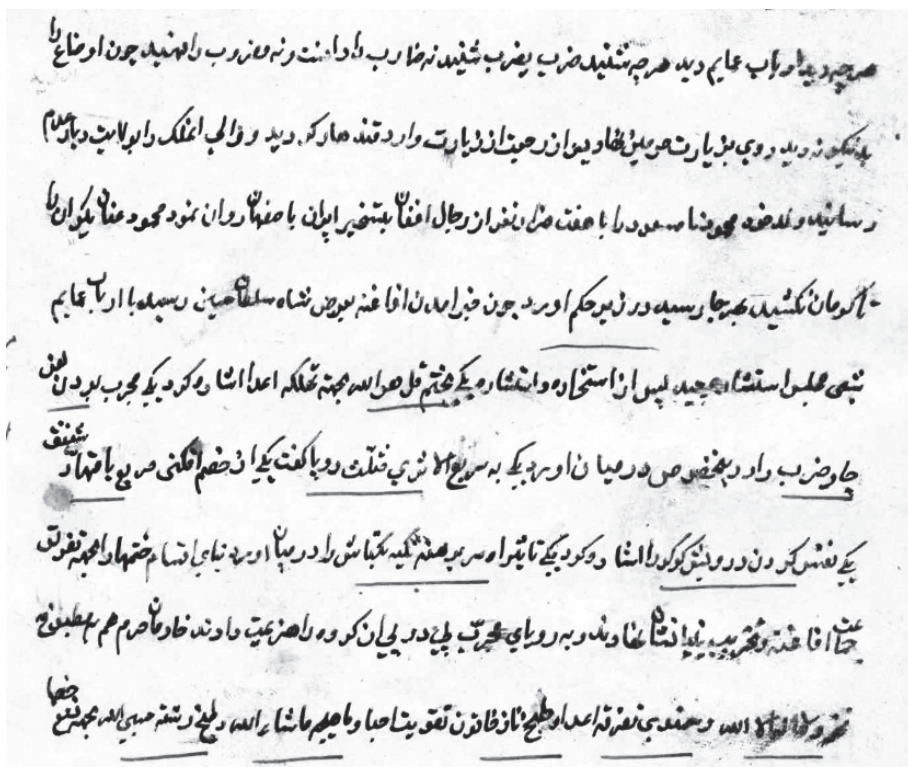 هر چه دید ارباب عمایم دید هر چه شنید ضرب یضرب شنید نه ضارب را دانست و نه مضروب را فهمید چون اوضاع را
بدینگونه دید روی بزیارت حرمین نهاد و پس از رجعت از زیارت وارد قندهار گردید و والی انملک را بولایت دیار عدم
رسانید و ولد خود محمود نا مسعود را با هفت هزار نفر از رجال افغان بتسخیر ایران باصفهان روان نمود محمود عنان یکران را
تا کرمان نکشید بهر جا رسید در زیر حکم اورد چون خبر امدن افاغنه بعرض شاه سلطان حسین رسید با ارباب عمایم
مجلس استشاره چید پس از استخاره و استشاره یکی بختم قل هو الله بجهته تهلکه اعدا اشاره کرد یکی مجرب بودن لعن
چار ضرب را در میان اورد یکی به سریع الا رویا گفت یکی از خصم افکنی
یکی نفس کردن درویش کوکو را اشاره کرد یکی تاثیر سر برهنه تکیه بکتاش را در میان اورد بنای اقسام ختمها را بجهته تفریق
جماعت افاغنه و تخریب بنیانشان نهادند و به رویای مجرب پی در پی ان گروه را هزیمت دادند خادمان حرم هم بطبخ
الا الله و سمنوی تفرقه اعدا و طبخ قانون تقویت احبا و ماشاء الله و طبخ رشته حسبی الله بجهته